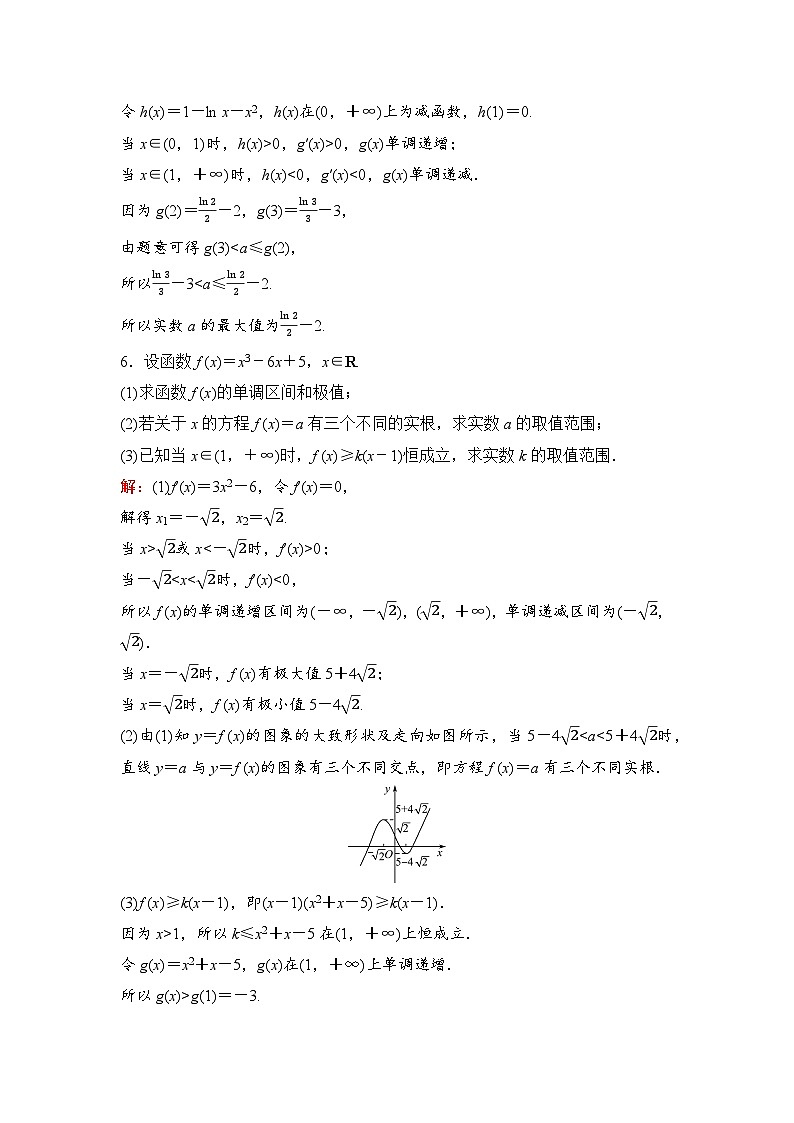 令 h(x)＝1－ln x－x²，h(x)在(0，＋∞)上为减函数，h(1)＝0.
当 x∈(0，1)时，h(x)>0，g′(x)>0，g(x)单调递增；
当 x∈(1，＋∞)时，h(x)<0，g′(x)<0，g(x)单调递减．
因为 g(2)＝ln 2/2－2，g(3)＝ln 3/3－3，
由题意可得 g(3)<a≤g(2)，
所以ln 3/3－3<a≤ln 2/2－2.
所以实数 a 的最大值为ln 2/2－2.
6．设函数 f (x)＝x³－6x＋5，x∈R.
(1)求函数 f (x)的单调区间和极值；
(2)若关于 x 的方程 f (x)＝a 有三个不同的实根，求实数 a 的取值范围；
(3)已知当 x∈(1，＋∞)时，f (x)≥k(x－1)恒成立，求实数 k 的取值范围．
解：(1)f′(x)＝3x²－6，令 f′(x)＝0，
解得 x₁＝－√2，x₂＝√2.
当 x>√2或 x<－√2时，f′(x)>0；
当－√2<x<√2时，f′(x)<0，
所以 f (x)的单调递增区间为(－∞，－√2)，(√2，＋∞)，单调递减区间为(－√2，
√2)．
当 x＝－√2时，f (x)有极大值 5＋4√2；
当 x＝√2时，f (x)有极小值 5－4√2.
(2)由(1)知 y＝f (x)的图象的大致形状及走向如图所示，当 5－4√2<a<5＋4√2时，
直线 y＝a 与 y＝f (x)的图象有三个不同交点，即方程 f (x)＝a 有三个不同实根．
y
5+4√2
√2
－√2 O x
5－4√2
(3)f (x)≥k(x－1)，即(x－1)(x²＋x－5)≥k(x－1)．
因为 x>1，所以 k≤x²＋x－5 在(1，＋∞)上恒成立．
令 g(x)＝x²＋x－5，g(x)在(1，＋∞)上单调递增．
所以 g(x)>g(1)＝－3.